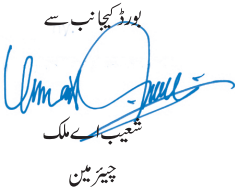 بورڈ کیجانب سے
شعیب اے ملک
چیئرمین